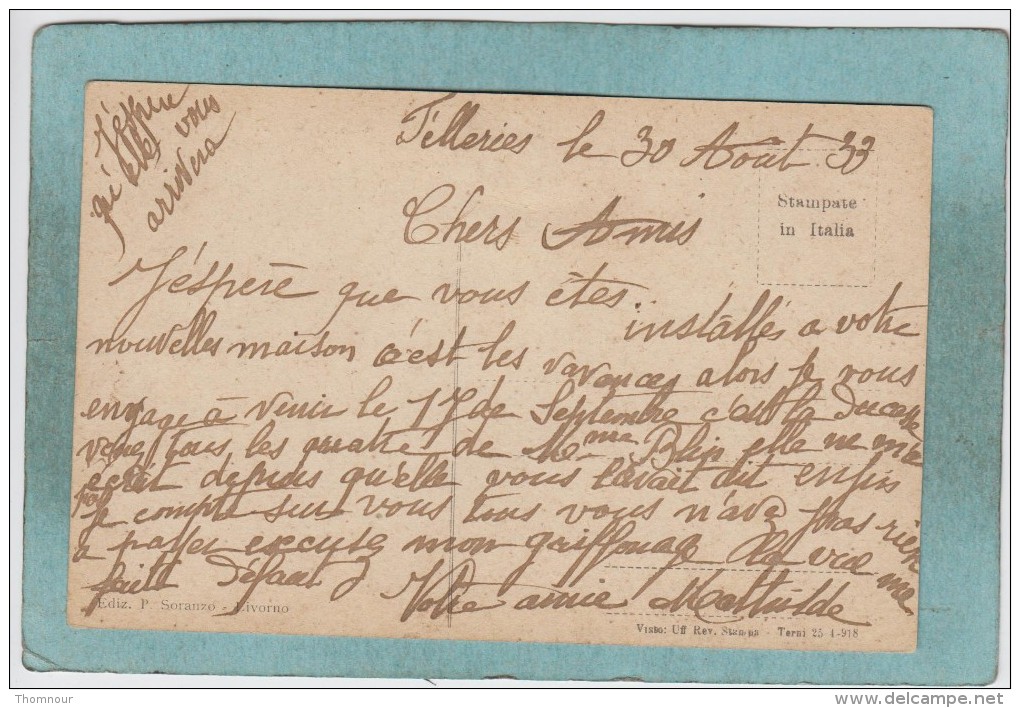 J'espere
qu'elle vous
arrivera
Félleries le 30 Août 33
Stampate
in Italia
Chers Amis
J'éspère que vous êtes
installés a votre
nouvelles maison c'est les vavances alors je vous
engage à venir le 17 de Septembre c'est la Ducasse
venez tous les quatre de Me me Blin elle ne ma
pas ecrit depuis qu'elle vous l'avait dit enfin
je compte sur vous tous vous n'avez pas rien
a payer excusez mon griffonage la vue me
fait défaut Votre amie Mathilde
Ediz. P. Soranzo - Livorno
Visto: Uff Rev. Stampa - Terni 25 1-918
Thomnour
www.delcampe.net